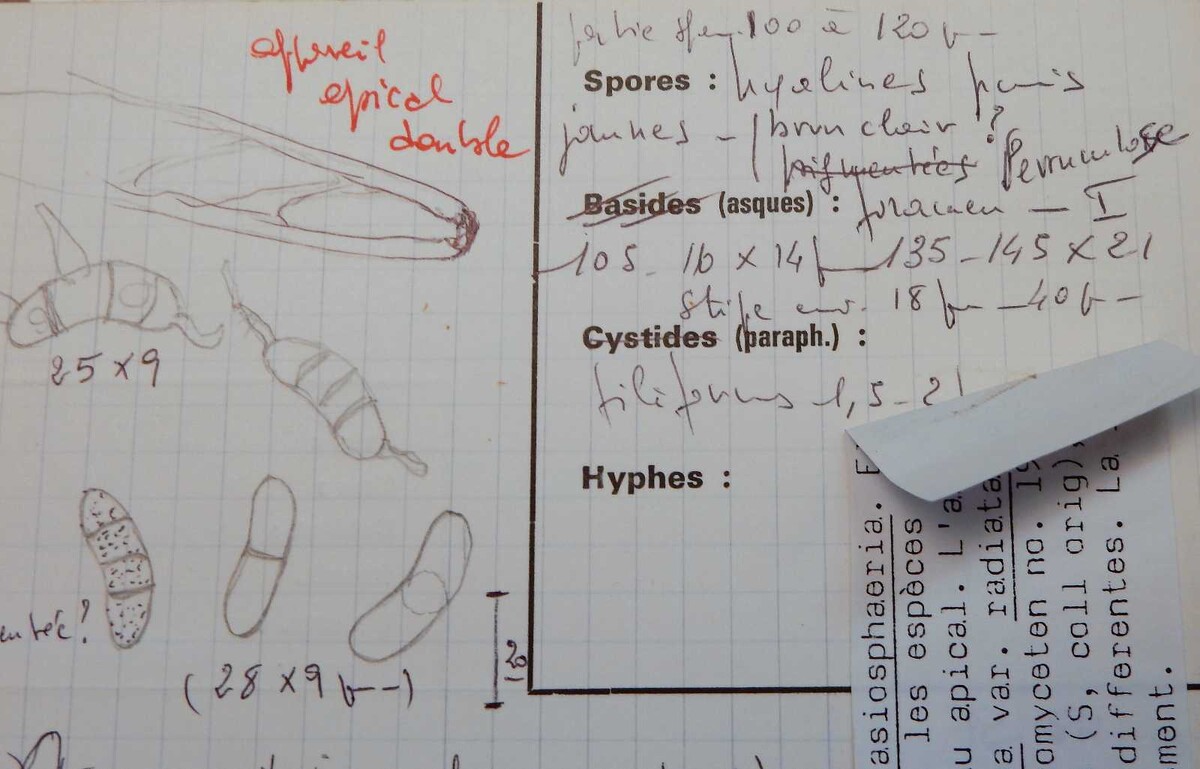 appareil
apical
double
25 x 9
(28 x 9 µ)
20
100 à 120 µ
Spores : hyalines puis
jaunes - brun clair ?
pigmentées
Basides (asques) : foramen - I
105 - x 14 µ 135 - 145 x 21
Stipe env. 18 µ - 40 µ
Cystides (paraph.) :
filiformes 1,5 - 2
Hyphes :
asiosphaeria.
les espèces
u apical. L'a
a var. radiata
omyceten no. 19
(S, coll orig)
differentes. La
ment.